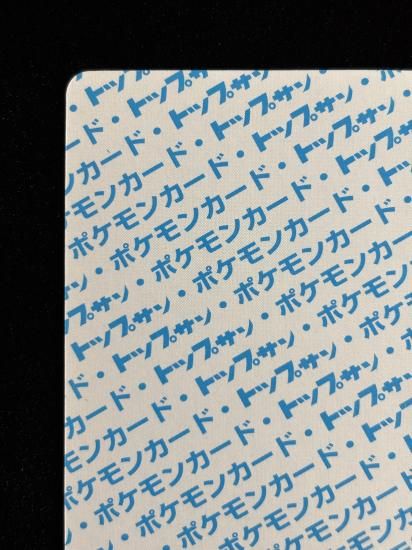 トップ
ード・トップサン
モンカード・トップサン・
ポケモンカード・トップサン・
ン・ポケモンカード・トップサン
サン・ポケモンカード・トップサン
トップサン・ポケモンカード・トップ
・トップサン・ポケモンカード・
ド・トップサン・ポケモンカード
カード・トップサン・ポケモンカ
モンカード・トップサン・ポケモ
ポケモンカード・トップサン・ポ
・ポケモンカード・トップサン・
・ポケモンカード・トップサン
・ポケモンカード・トップ
ポケモンカード